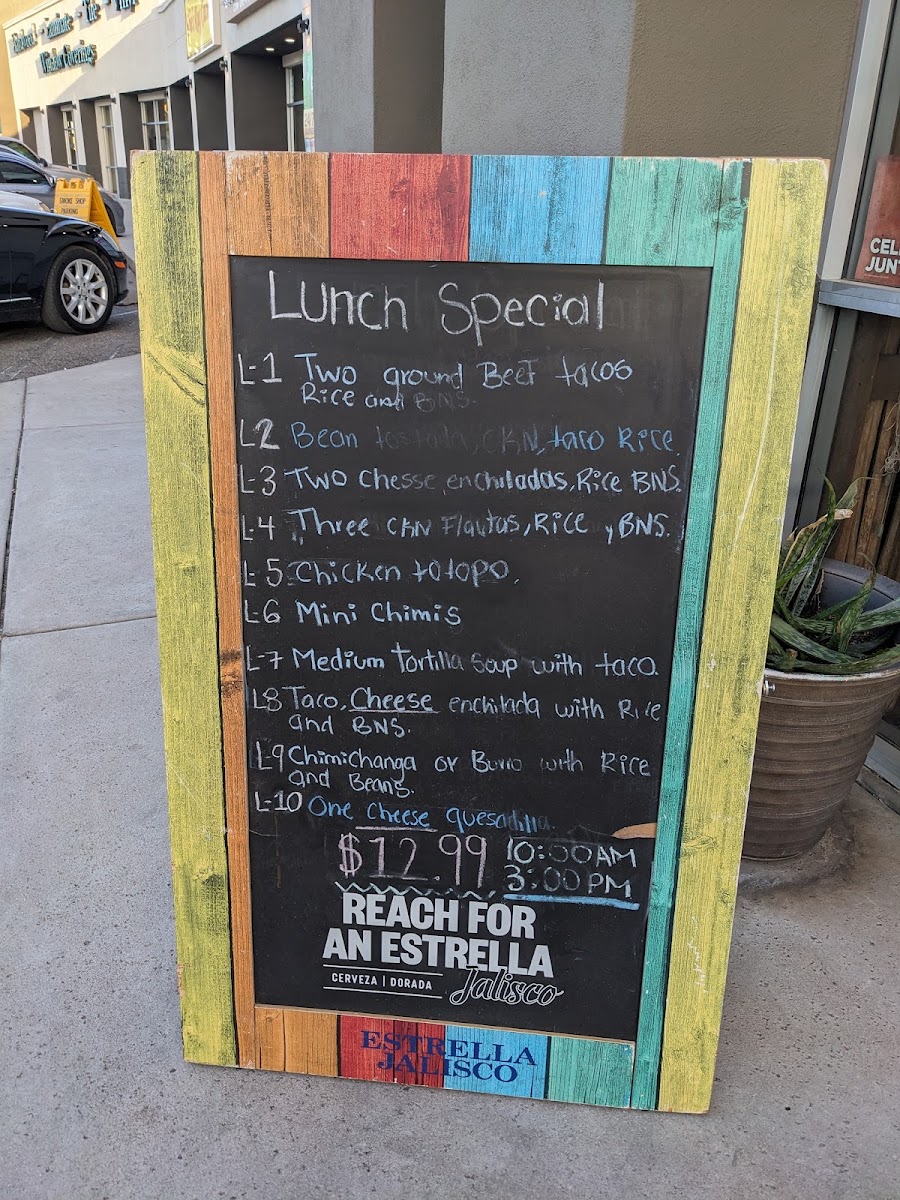 Lunch Special
L-1 Two ground Beef tacos
Rice and BNS.
L2 Bean tostada, CKN, taco Rice
L-3 Two Chesse, enchiladas, Rice BNS.
L-4 Three CKN Flautas, Rice y BNS.
L-5 Chicken totopo,
L-6 Mini Chimis
L-7 Medium Tortilla Soup with taco.
L8 Taco, Cheese enchilada with Rice
and BNS.
L-9 Chimichanga or Burro with Rice
and Beans.
L-10 One Cheese quesadilla.
$12.99 10:00AM
3:00 PM
REACH FOR
AN ESTRELLA
CERVEZA | DORADA Jalisco
ESTRELLA
JALISCO
Window Coverings
SMOKE SHOP
PARKING
CEL
JUN